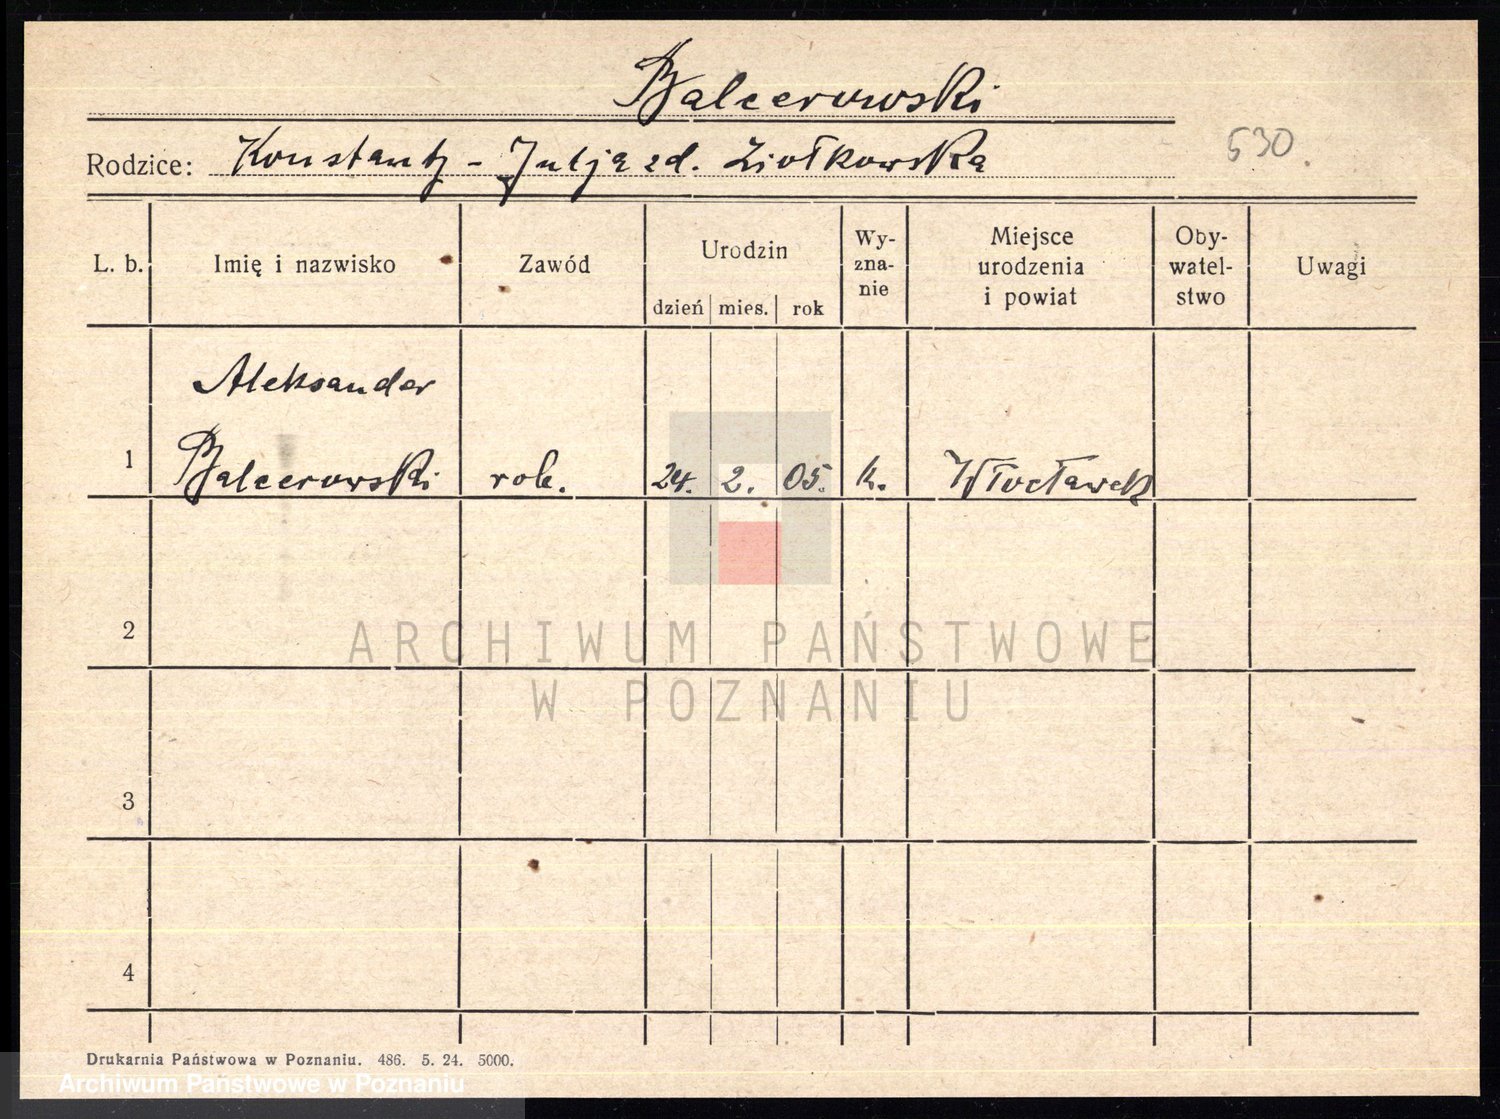 Balcerowski
Rodzice: Konstanty - Julja zd. Ziołkowska
530.
L. b.
Imię i nazwisko
Zawód
Urodzin
dzień mies. rok
Wy-
zna-
nie
Miejsce
urodzenia
i powiat
Oby-
watel-
stwo
Uwagi
Aleksander
1 Balcerowski rob. 24. 2. 05. k. Włocławek
2
ARCHIWUM PAŃSTWOWE
W POZNANIU
3
4
Drukarnia Państwowa w Poznaniu. 486. 5. 24. 5000.
Archiwum Państwowe w Poznaniu